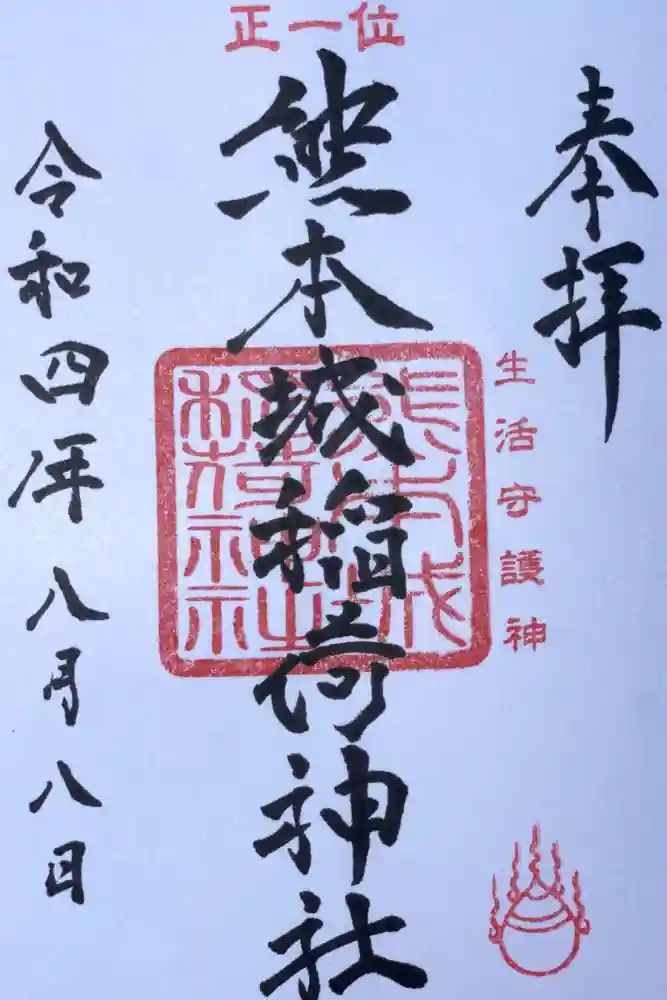 奉拝
生活守護神
正一位
熊本城稲荷神社
熊本城
稲荷神社
令和四年八月八日